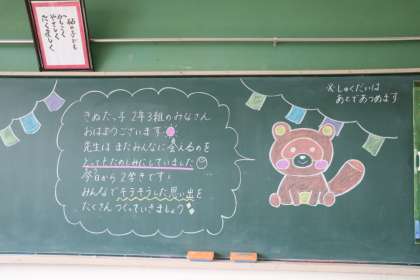 かしこく
やさしく
たくましく
※しゅくだいは
あとであつめます
きぬだっ子 2年3組のみなさん
おはようございます
先生はまたみんなに会えるのを
とってもたのしみにしていました
今日から2学きです!
みんなでキラキラした思い出を
たくさんつくっていきましょう